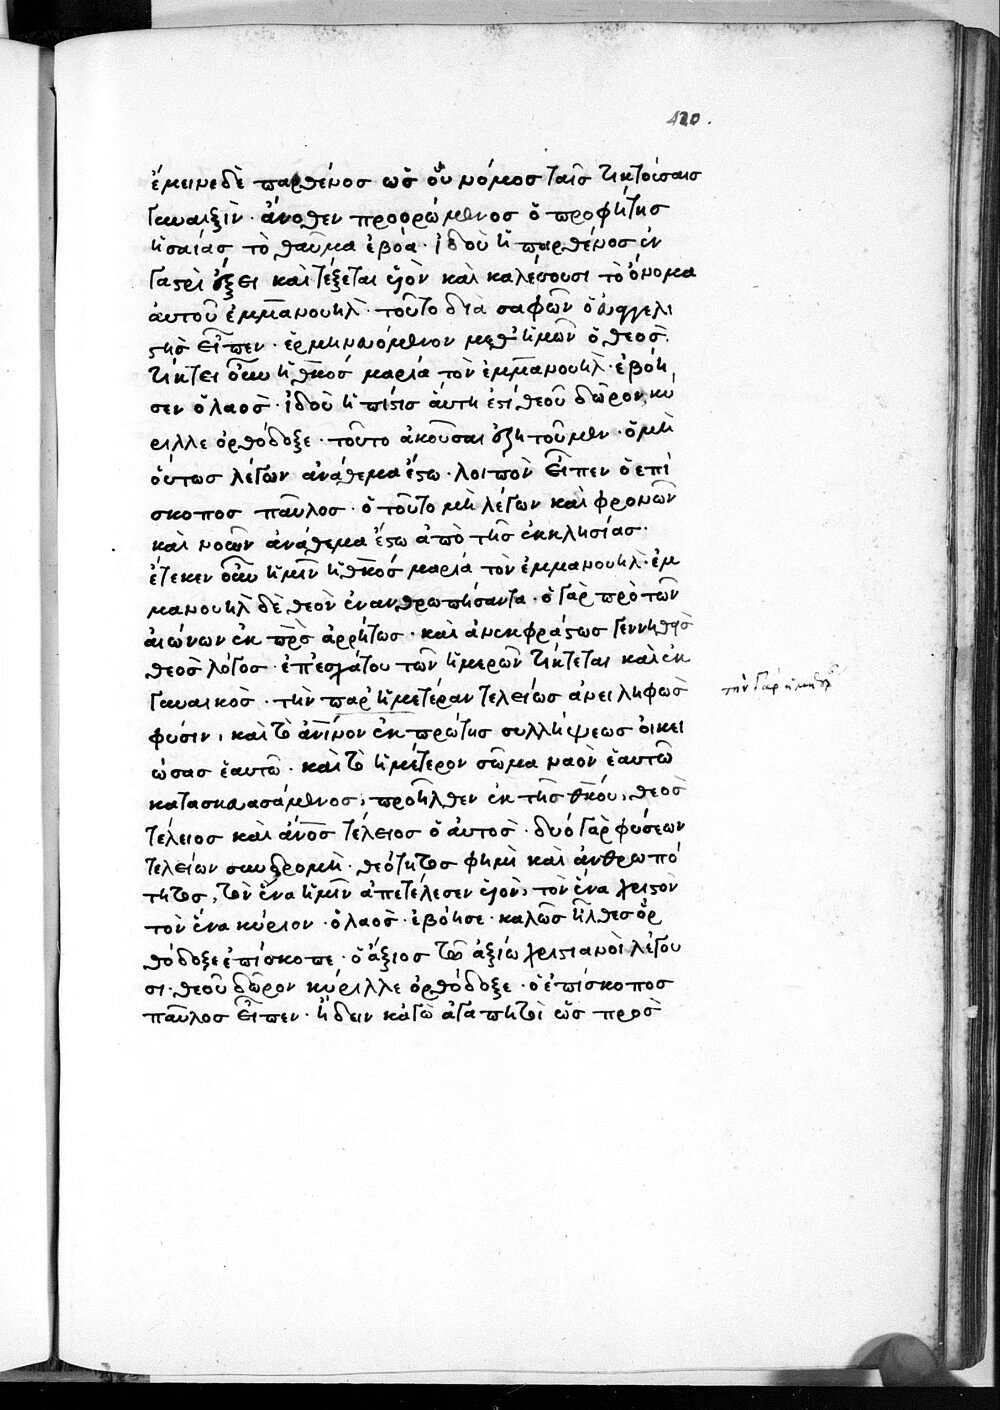 420.
ἔμεινε δὲ παρθένος ὡς οὐ νόμος ταῖς τικτούσαις
γυναιξίν· ἄνοθεν προορώμενος ὁ προφήτης
ἡσαίας τὸ θαῦμα ἐβόα· ἰδοὺ ἡ παρθένος ἐν
γαστρὶ ἕξει καὶ τέξεται υἱὸν καὶ καλέσουσι τὸ ὄνομα
ἀυτοῦ ἐμμανουὴλ· τοῦτο διὰ σαφῶν ὁ ἀγγελι
στὴς εἶπεν· ἑρμηνευόμενον μεθ ἡμῶν ὁ θεός·
τίκτει οὖν ἡ θκος μαρία τὸν ἐμμανουήλ· ἐβόη
σεν ὁ λαος· ἰδοὺ ἡ πίστις ἅυτη ἐστί θεοῦ δῶρον, κύ
ριλλε ὀρθόδοξε· τοῦτο ἀκοῦσαι ἐζητοῦμεν· ὁ μὴ
ὅυτως λέγων ἀνάθεμα ἔστω· λοιπὸν εἶπεν ὁ ἐπί
σκοπος παῦλος· ὁ τοῦτο μὴ λέγων καὶ φρονῶν
καὶ νοῶν ἀνάθεμα ἔστω ἀπὸ τῆς ἐκκλησίας·
ἔτεκεν οὖν ἡμῖν ἡ θκος μαρία τὸν ἐμμανουήλ· ἐμ
μανουὴλ δὲ θεὸν ἐνανθρωπήσαντα· ὁ γὰρ πρὸ τῶν
αἰώνων ἐκ πρς ἀρρήτως· καὶ ἀνεκφράστως γεννηθεὶς
θεος λόγος· ἐπ' ἐσχάτου τῶν ἡμερῶν τίκτεται καὶ ἐκ
γυναικὸς· τὴν παρ ἡμετέραν τελείως ἀνειληφὼς
τὴν γὰρ ἡμετέρ
φύσιν, καὶ τὸ ἀνινον ἐκ πρώτης συλλήψεως ὀικει
ώσας ἑαυτῶ· καὶ τὸ ἡμέτερον σῶμα ναὸν ἑαυτῶ
κατασκευασάμενος, προῆλθεν ἐκ τῆς θκου, θεὸς
τέλειος καὶ ἀνος τέλειος ὁ ἀυτὸς· δυό γὰρ φύσεων
τελείων συνδρομὴ· θεότητος φημὶ καὶ ἀνθρωπό
τητος, τὸν ἕνα ἡμῖν ἀπετέλεσεν υἱὸν, τὸν ἕνα χριστὸν
τὸν ἕνα κύριον· ὁ λαος· ἐβόησε· καλῶς ἦλθες ὀρ
θόδοξε ἐπίσκοπε· ὁ ἄξιος τῶ ἀξίω χριστιανοὶ λέγου
σι· θεοῦ δῶρον κύριλλε ὀρθόδοξε· ὁ ἐπίσκοπος
παῦλος εἶπεν· ἤδειν κἀγὼ ἀγαπητοὶ ὡς πρὸς